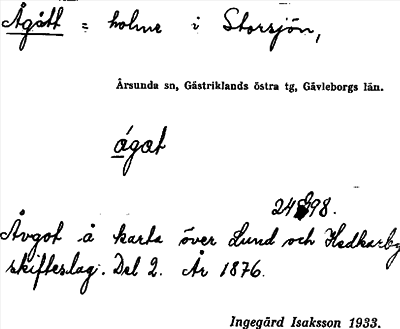 Ågått = holme i Storsjön,
Årsunda sn, Gästriklands östra tg, Gävleborgs län.
ágat
Åvgot å karta över Lund och Hedkarby
skifteslag. Del 2. År 1876.
Ingegärd Isaksson 1933.